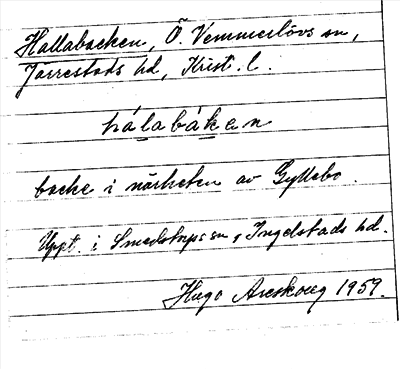 Hallabacken, Ö. Vemmerlövs sn,
Järrestads hd, Krist. l.
hálabáken
backe i närheten av Gyllebo.
Uppt. i Smedstorps sn, Ingelstads hd.
Hugo Areskoug 1959.